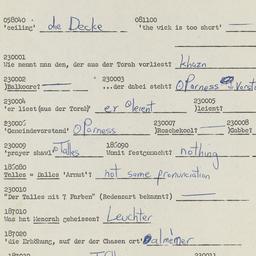 058040 081100
'ceiling' die Decke 'the wick is too short'
230001
Wie nennt man den, der aus der Torah vorliest? khazn
230002 230003
)Balkore? ...der dabei steht? O Parness
230004 230005
'er liest (aus der Torah)' er oleient )leient?
230006 230007 230008
'Gemeindevorstand' O Parness )Roschekool? )Gabbe?
230009 185090
'prayer shawl' Talles Womit festgemacht? nothing
185080
Talles = Dalles 'Armut'? not same pronunciation
230010
"Der Talles mit 7 Farben" (Redensart bekannt?)
187010
Was hat Menorah geheissen? Leuchter
187020
'die Erhöhung, auf der der Chasen ort' Balmemer
230011